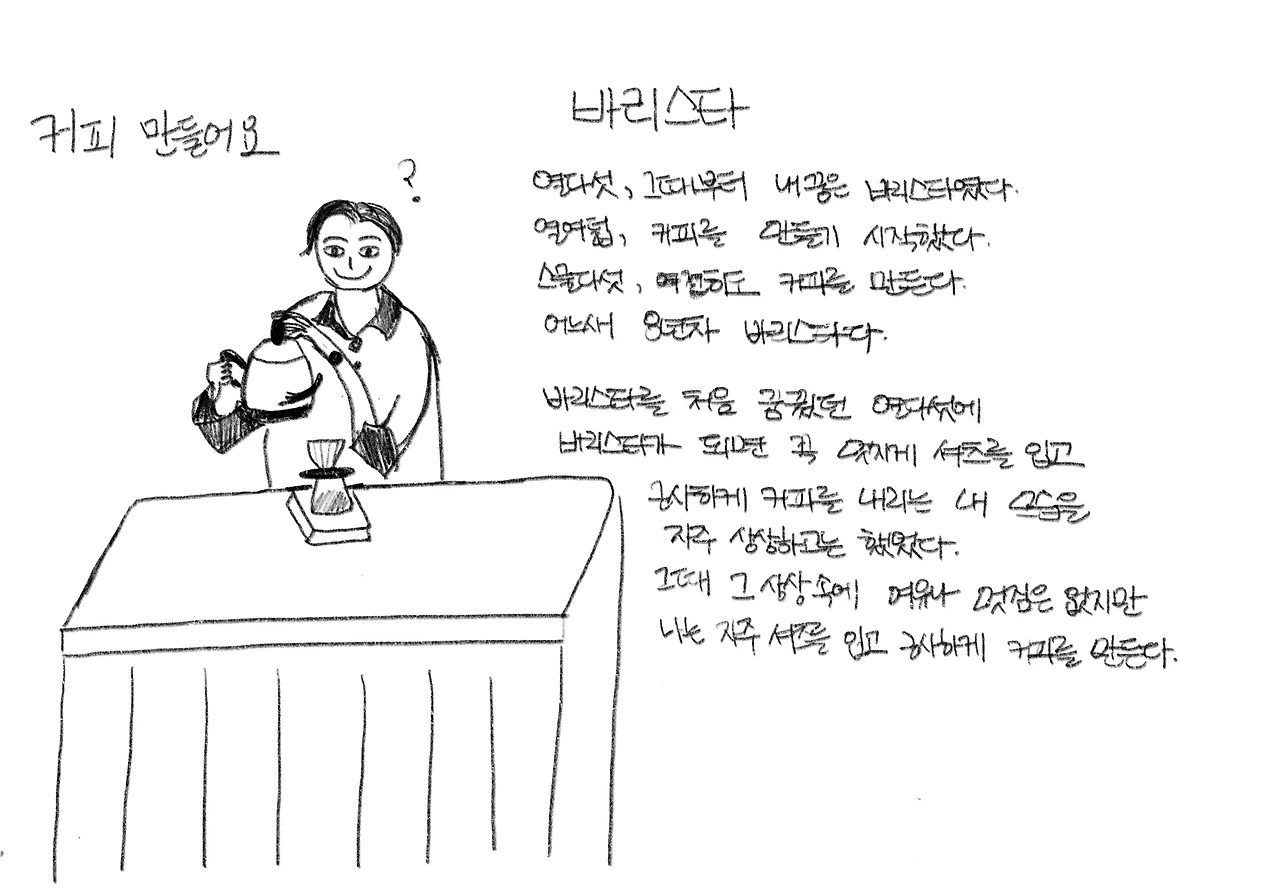 커피 만들어요
?
바리스타
열다섯, 그때부터 내 꿈은 바리스타였다.
열여덟, 커피를 만들기 시작했다.
스물다섯, 여전히도 커피를 만든다.
어느새 8년차 바리스타다.
바리스타를 처음 꿈꿨던 열다섯에
바리스타가 되면 꼭 멋지게 셔츠를 입고
근사하게 커피를 내리는 내 모습을
자주 상상하고는 했었다.
그때 그 상상속에 여유나 멋짐은 없지만
나는 자주 셔츠를 입고 근사하게 커피를 만든다.